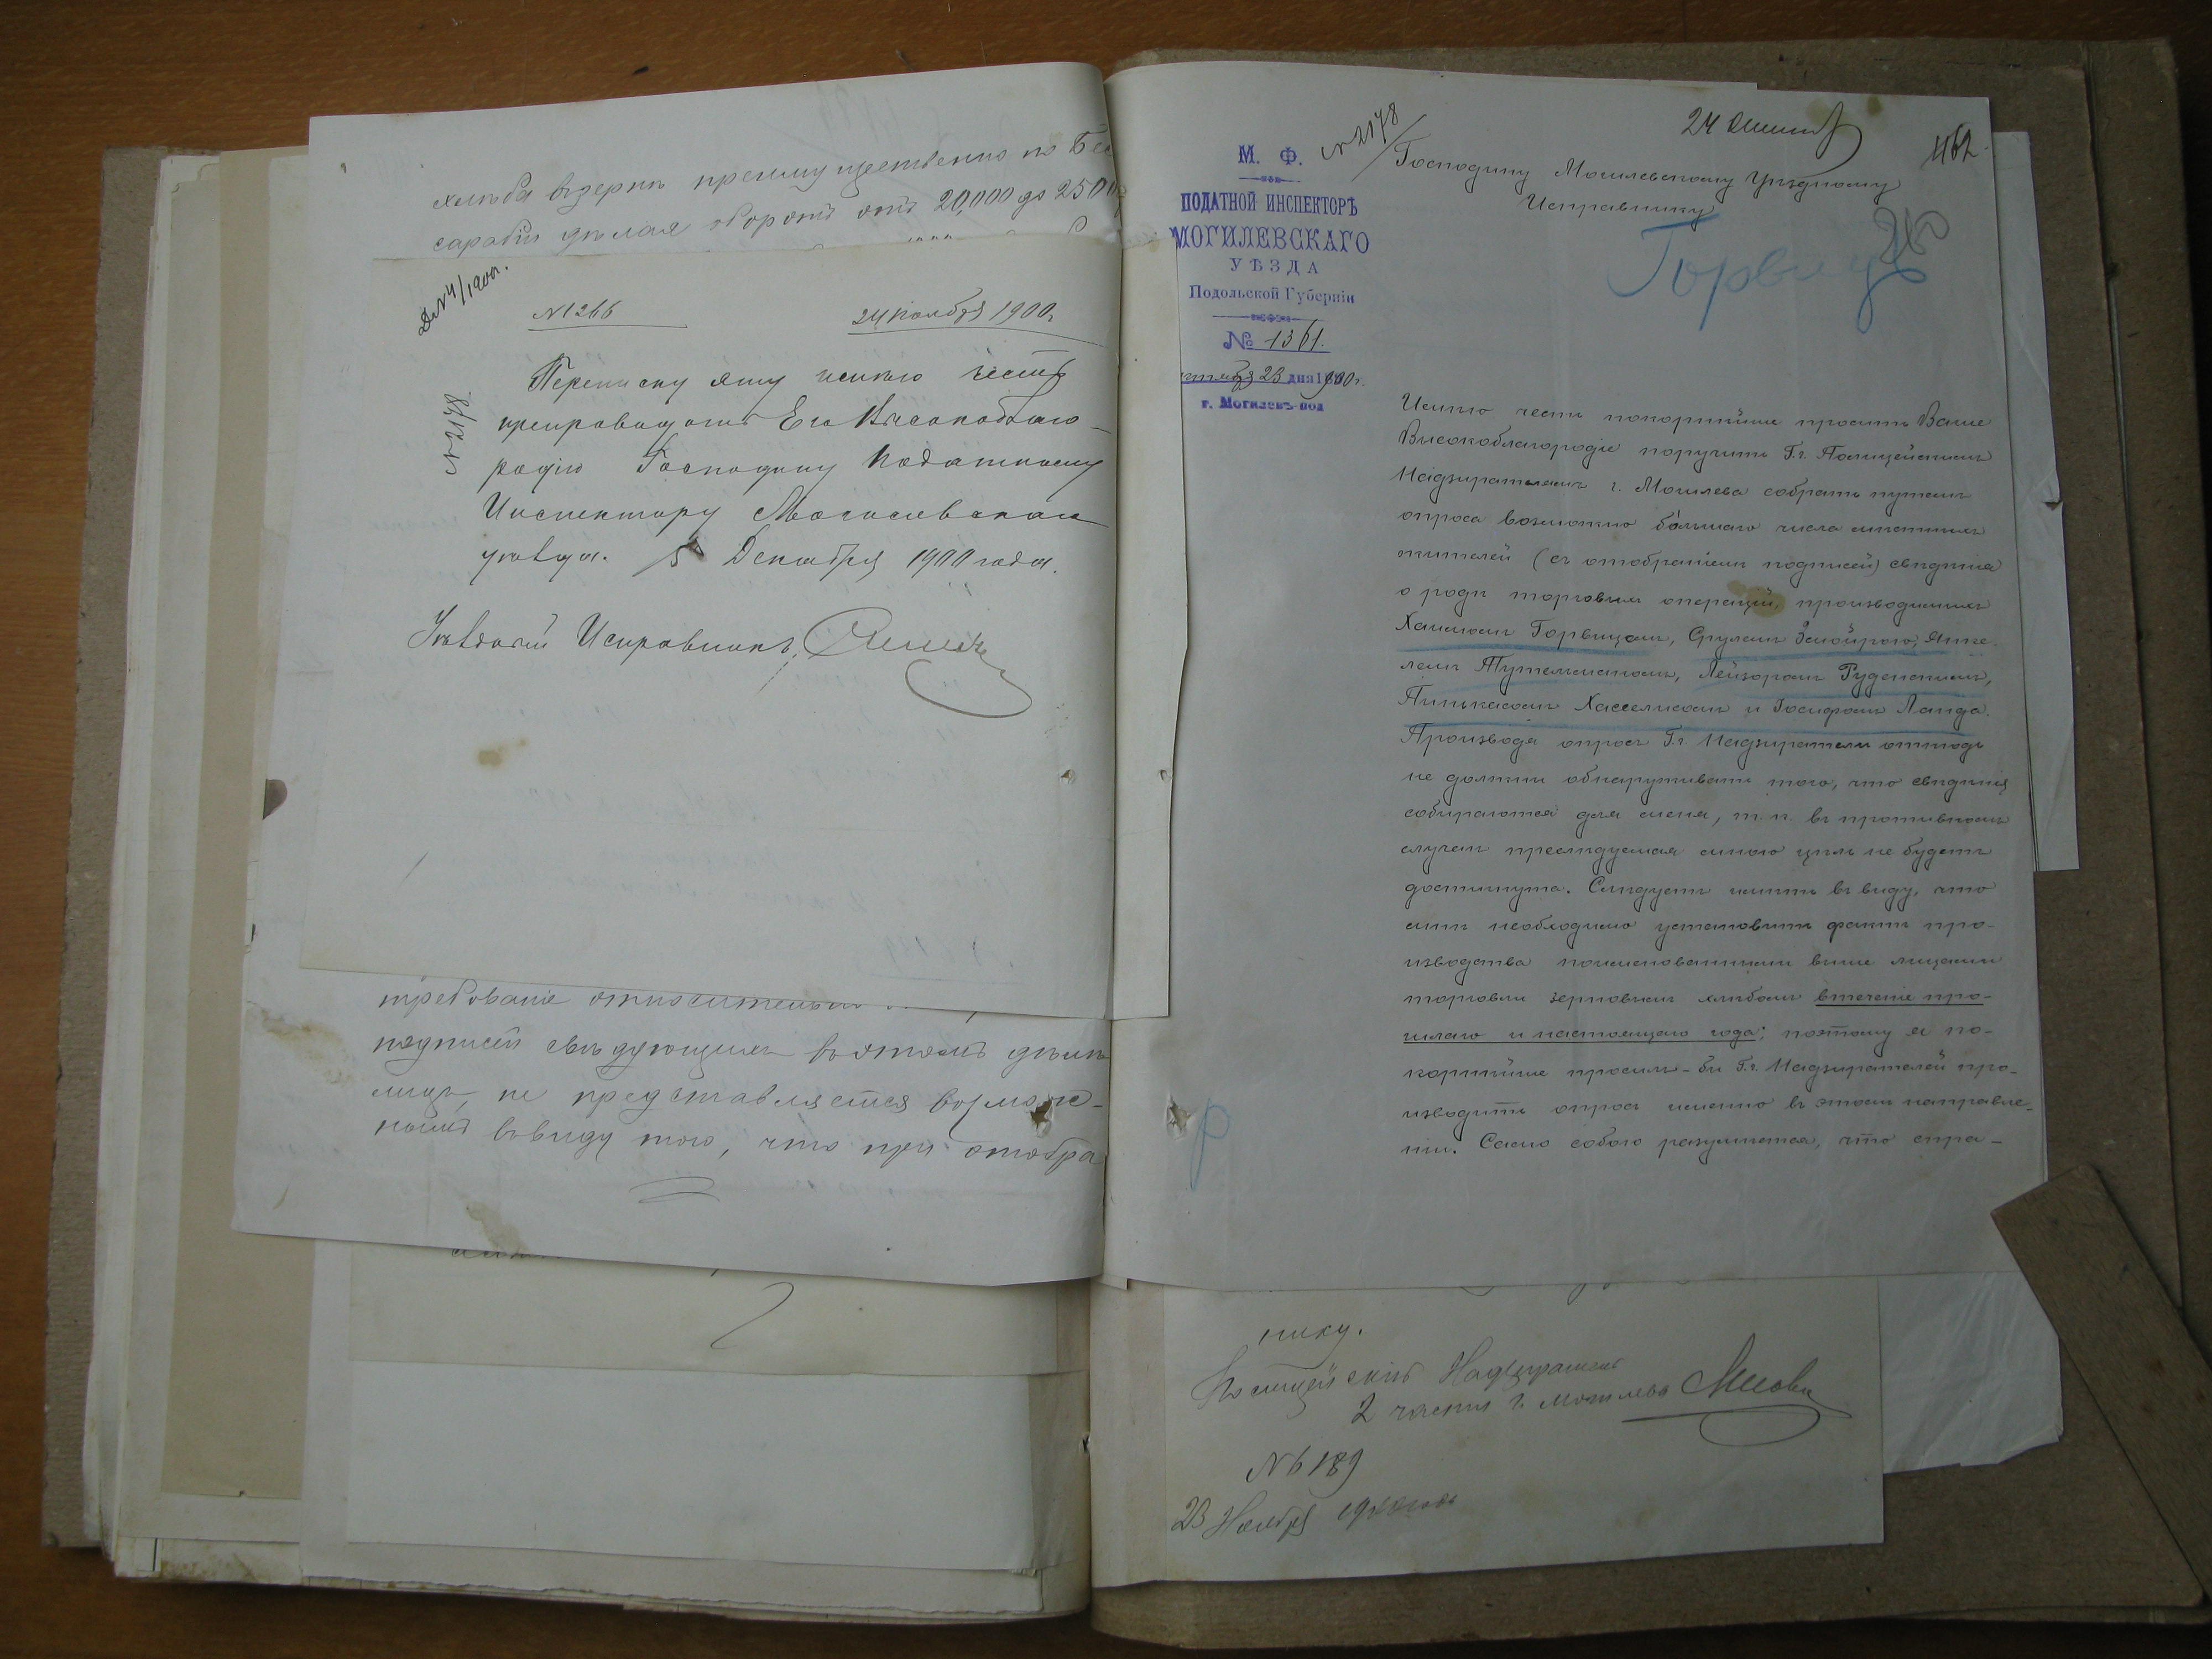 хлѣба въ зернѣ преимущественно по Бес
сарабіи дѣлая оборотъ отъ 20,000 до 2500
Д.№4/1900г.
№1266
24 ноября 1900г.
№2178
Переписку эту имѣю честь
препроводить Его Высокоблаго-
родію Господину Податному
Инспектору Могилевскаго
уѣзда. 5 Декабря 1900 года.
Уѣздный Исправникъ,
требованіе относительно
подписей свѣдующихъ въ этомъ дѣлѣ
лицъ, не представляется возмож-
нымъ въ виду того, что при отобра
№2178
24 462.
М. Ф.
ПОДАТНОЙ ИНСПЕКТОРЪ
МОГИЛЕВСКАГО
УѢЗДА
Подольской Губерніи
№ 1361.
23 дня 1900г.
г. Могилевъ-под
Господину Могилевскому Уѣздному
Исправнику
Горвицъ
Имѣю честь покорнѣйше просить Ваше
Высокоблагородіе поручить Г.г. Полицейскимъ
Надзирателямъ г. Могилева собрать путемъ
опроса возможно бо́льшаго числа мѣстныхъ
жителей (съ отобраніемъ подписей) свѣдѣнія
о родѣ торговыхъ операцій, производимыхъ
Хаимомъ Горвицомъ, Срулемъ Янке-
лемъ Тутельманомъ, Лейзоромъ Руденскимъ,
Пинькасомъ Хасселисомъ и Іосифомъ Ланда.
Производя опросъ Г.г. Надзиратели отнюдь
не должны обнаруживать того, что свѣдѣнія
собираются для меня, т.к. въ противномъ
случаѣ преслѣдуемая мною цѣль не будетъ
достигнута. Слѣдуетъ имѣть въ виду, что
мнѣ необходимо установить фактъ про-
изводства поименованными выше лицами
торговли зерновымъ хлѣбомъ втеченіе про-
шлаго и настоящаго года; поэтому я по-
корнѣйше просилъ-бы Г.г. Надзирателей про-
изводить опросъ именно въ этомъ направле-
ніи. Само собою разумѣется, что спра-
нику.
Полицейскій Надзиратель
2 части г. Могилева
№6189
23 Ноября 1900 года